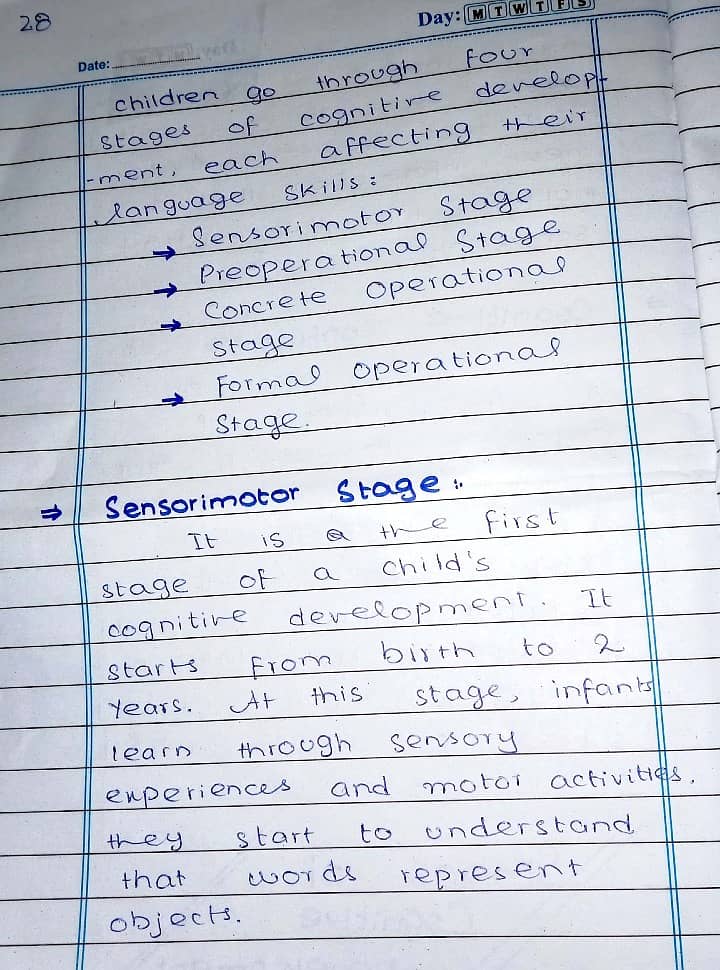 28
Day: M T W T F S
Date:
children go through four
stages of cognitive develop-
-ment, each affecting their
language skills :
→ Sensorimotor Stage
→ Preoperational Stage
→ Concrete Operational
Stage
→ Formal Operational
Stage.
⇒ Sensorimotor Stage :
It is a the first
stage of a child's
cognitive development. It
starts from birth to 2
Years. At this stage, infants
learn through sensory
experiences and motor activities.
they start to understand
that words represent
objects.